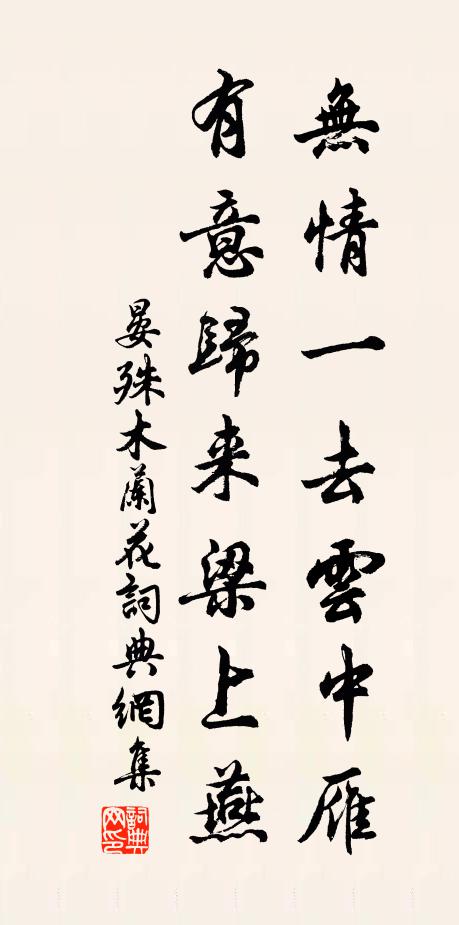 無情一去雲中雁
有意歸来梁上燕
晏殊木蘭花詞典網集
詞典
网印